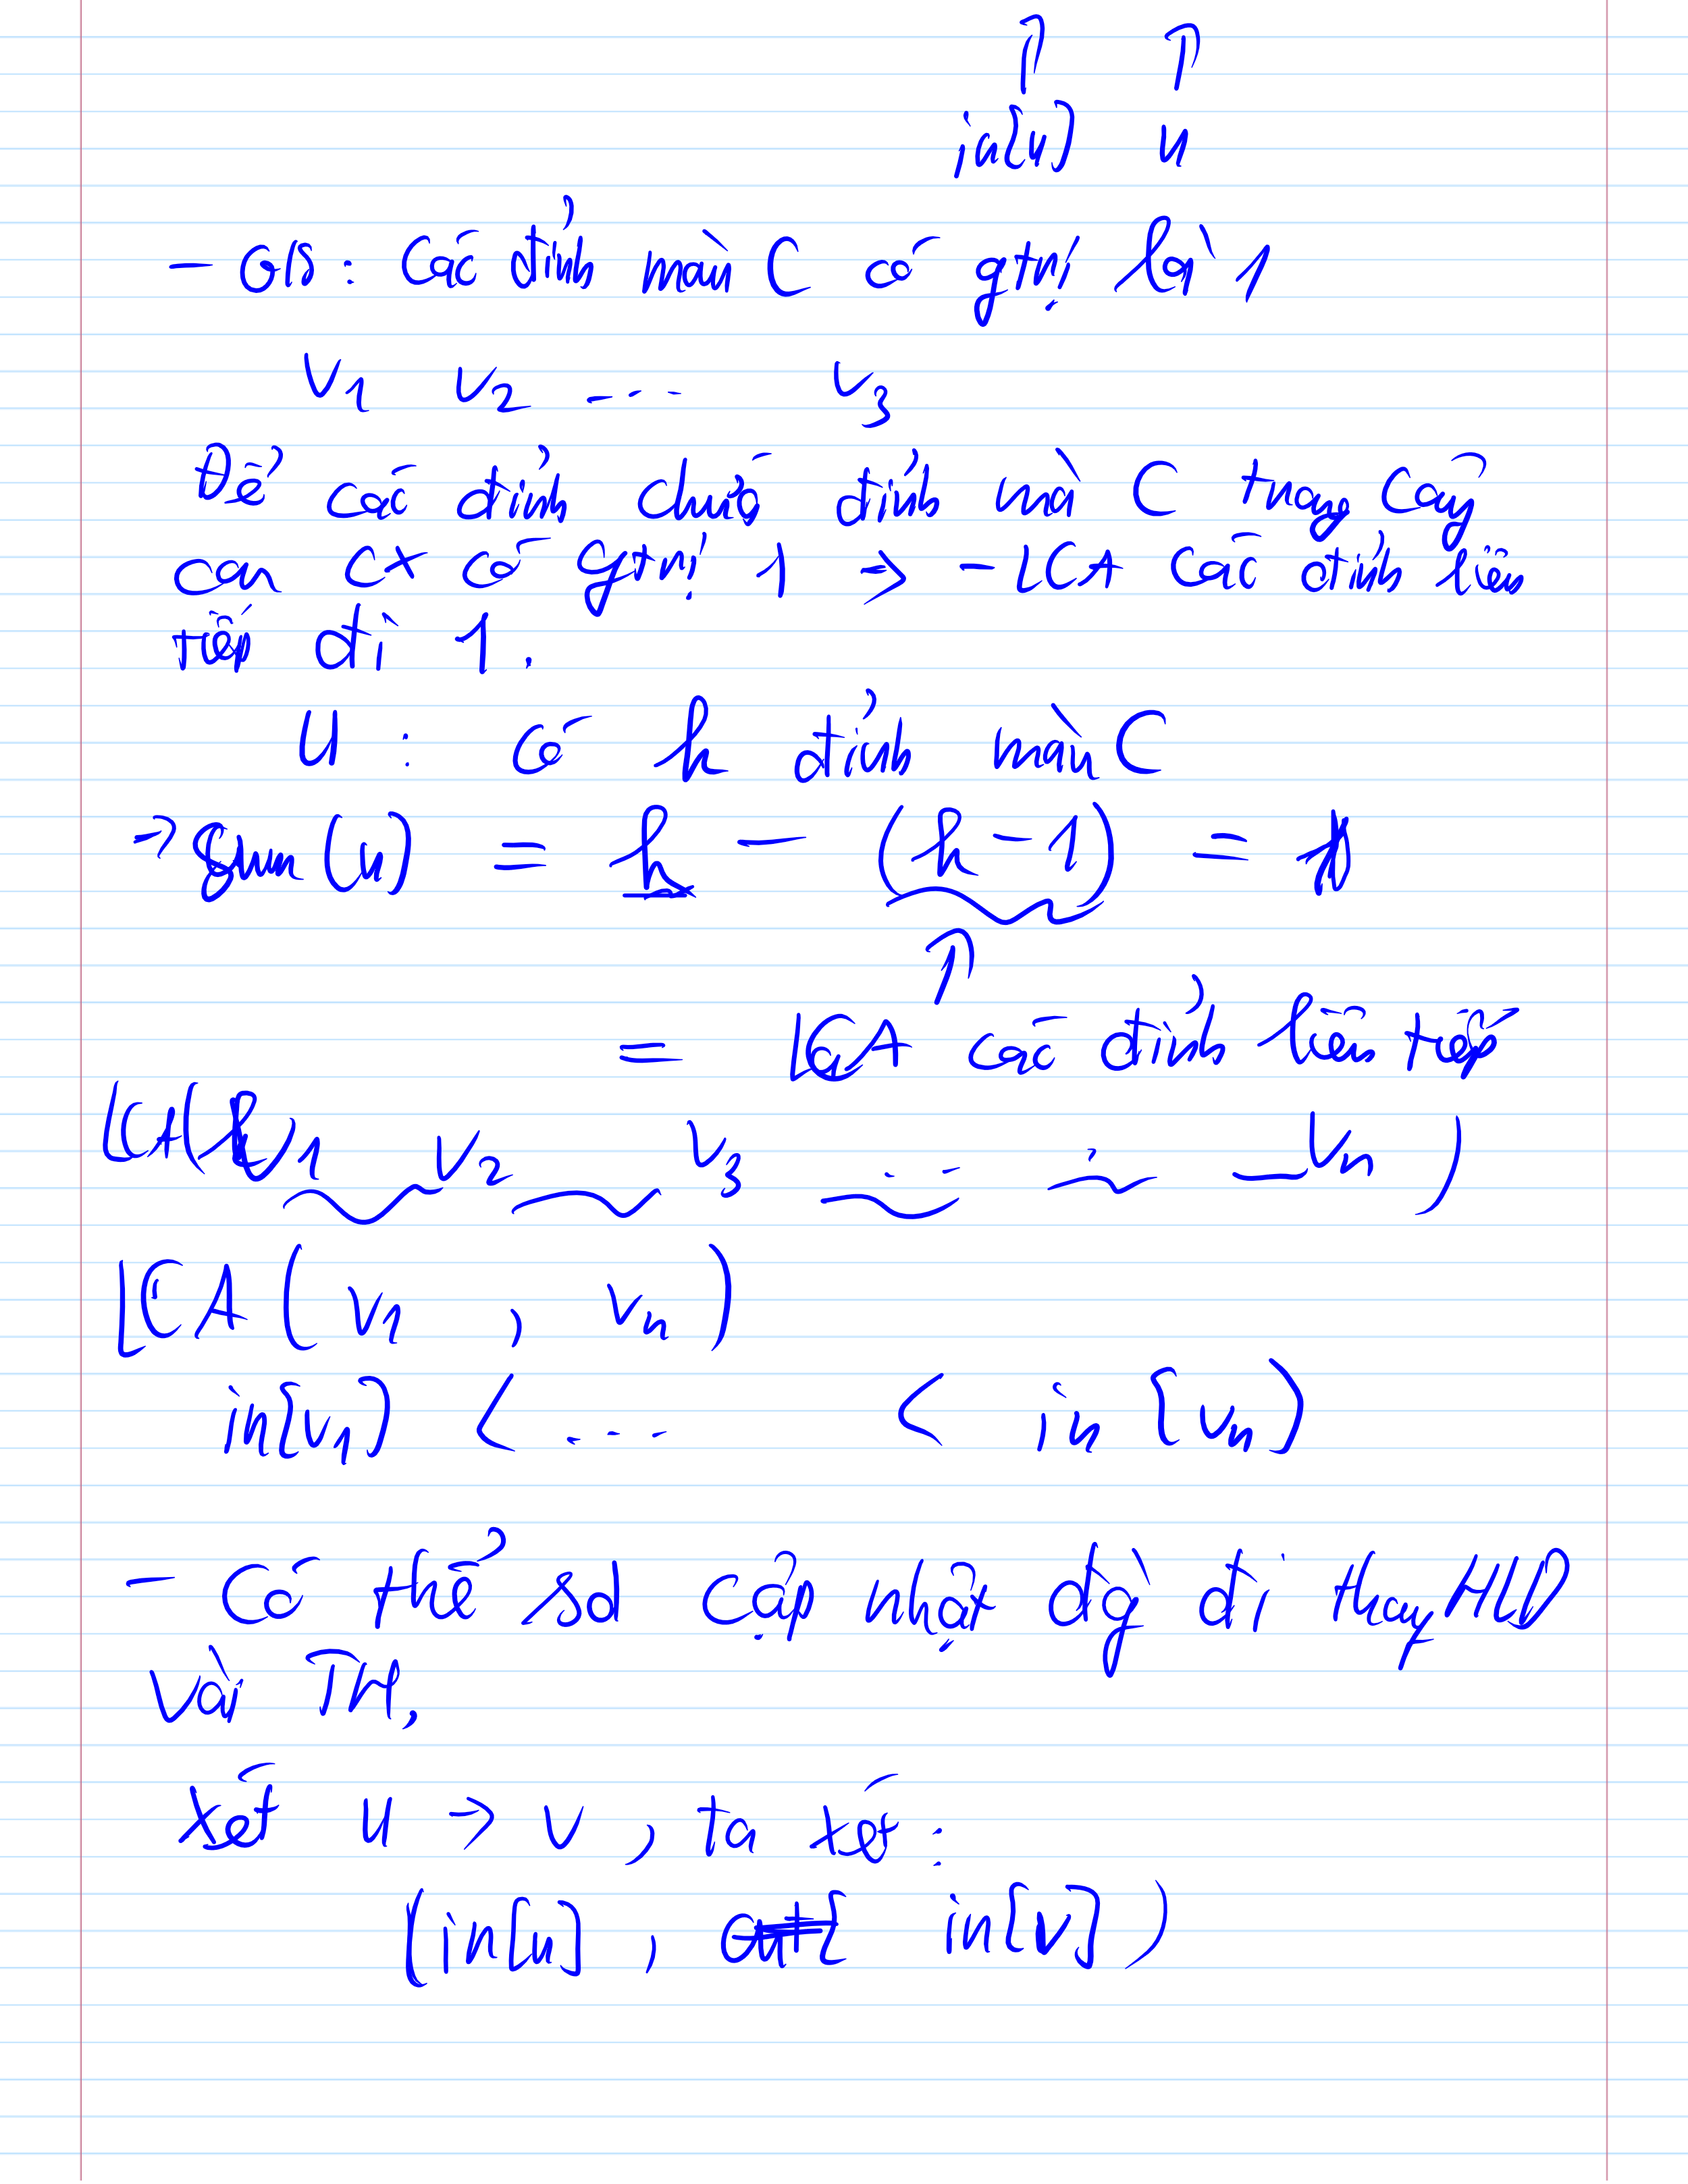 ↑ ↑
in[u] u
- GS: Các đỉnh màu C có gtrị là 1
v1 v2 ---- v3
Để các đỉnh chứa đỉnh màu C trong cây
con cx có gtrị 1 => - LCA các đỉnh liên
tiếp đi 1.
U : có k đỉnh màu C
=> sum(u) = k - (k-1) = 1
↑
= LCA các đỉnh liên tiếp
LCA(v1 v2 v3 ... vn)
LCA (v1, vn)
in[v1] < .... < in[vn]
- Có thể sd cập nhật đg đi thay HLD
vài TH.
Xét u -> v, ta xét:
(in[u], in[v])